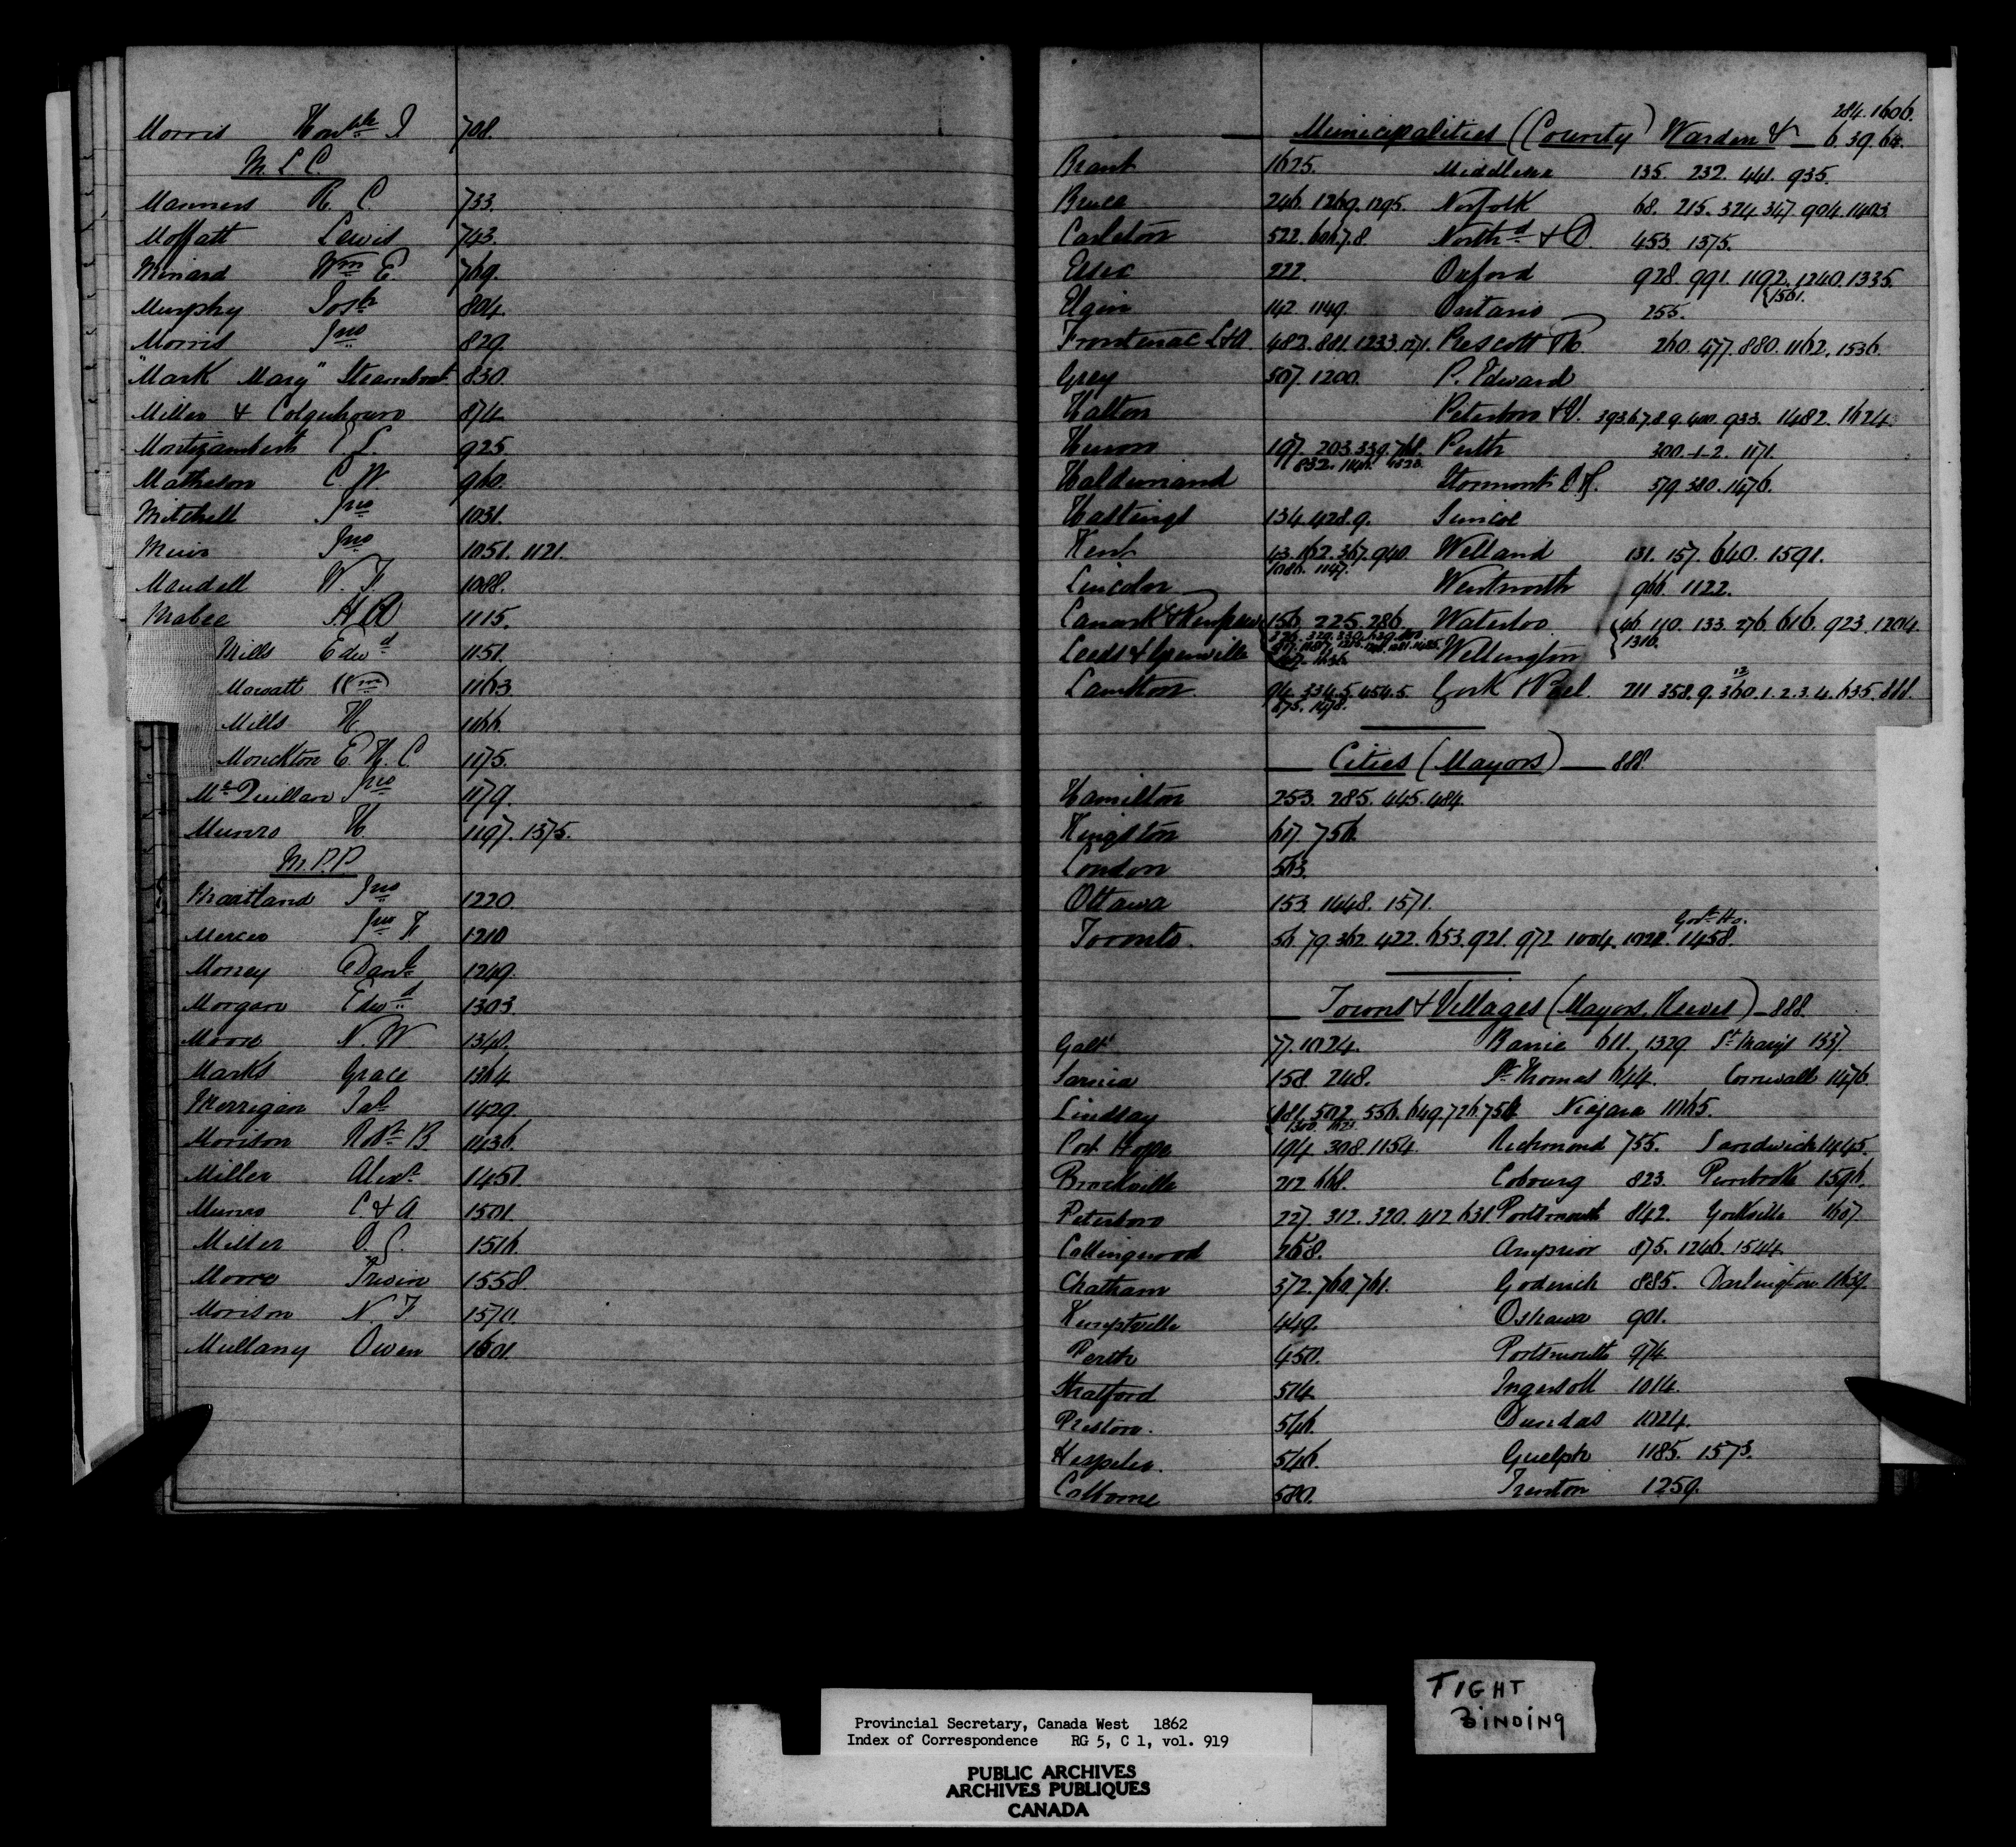 Morris Honble J 708.
M. L. C.
Manners R. C. 733.
Moffatt Lewis 743.
Minard Wm E. 769.
Murphy Josh 804.
Morris Jno 829.
"Mark Mary" Steamboat 830.
Miller & Colquhoun 874.
Montizambert E L. 925.
Matheson C. W 960.
Mitchell Jno 1031.
Muir Jno 1051. 1121.
Mandell W. F. 1088.
Mabee 1115.
Mills Edwd 1151.
Mowatt Wm 1163.
Mills H 1166.
Monckton E. H. C. 1175.
McQuillan Jno 1179.
Munro H. 1197. 1375.
M.P.P
Maitland Jno 1220.
Mercer Jno F. 1210
Morrey Danl 1249.
Morgan Edwd 1303.
Moore N. W. 1340.
Marks Grace 1364.
Merrigan 1429.
Morison Robt B. 1436.
Miller Alexr 1451.
Munro C. & A. 1501.
Miller 1516.
Moore Irwin 1558.
Morison N. F. 1570.
Mullany Owen 1601.
284. 1606.
Municipalities (County) Warden &c 6. 39. 64.
Brant 1625. Middlesex 135. 232. 441. 935.
Bruce 246. 1269. 1295. Norfolk 68. 215. 324. 347. 904. 1403.
Carleton 522. 606.7.8. Northd & D. 453. 1375.
Essex 222. Oxford 928. 991. 1192. 1240. 1335.
1561.
Elgin 142. 1149. Ontario 255.
Frontenac L&A. 482. 881. 1233. 1271. Prescott & R. 260. 477. 880. 1162. 1536.
Grey 507. 1200. P. Edward
Halton Peterboro & V. 393.6.7.8.9. 400. 933. 1482. 1624.
Huron 197. 203. 339. 768. Perth 300.-1-2. 1171.
832.
Haldimand Stormont D. G. 379. 380. 1476.
Hastings 134. 428.9. Simcoe
Kent 43. 162. 367. 940. Welland 131. 157. 640. 1591.
1086. 1147.
Lincoln Wentworth 966. 1122.
Lanark & Renfrew 156. 225. 286 Waterloo 46. 110. 133. 276. 616. 923. 1204.
1310.
Leeds & Grenville Wellington
Lambton 94. 334.5. 454.5. York & Peel 211. 358.9. 360.1.2.3.4. 635. 888.
875. 1478.
Cities (Mayors) 888.
Hamilton 253. 285. 445. 484.
Kingston 617. 756.
London 563.
Ottawa 153. 1448. 1571.
Govt Ho.
Toronto. 56. 79. 362. 422. 653. 921. 972 1004. 1022. 1458.
Towns & Villages (Mayors, Reeves) 888.
Galt 77. 1024. Barrie 611. 1329. St Mary's 1337.
Sarnia 158. 248. St Thomas 644. Cornwall 1476.
Lindsay 181. 502. 556. 649. 726. 750. Niagara 1065.
Port Hope 194. 308. 1154. Richmond 755. Sandwich 1445.
Brockville 212. 668. Cobourg 823. Pembroke 1596.
Peterboro 227. 312. 320. 412. 631. Portsmouth 842. Yorkville 1607.
Collingwood 268. Arnprior 875. 1246. 1544.
Chatham 372. 760. 761. Goderich 885. Darlington 1639.
Kemptville 449. Oshawa 901.
Perth 450. Portsmouth 974.
Stratford 514. Ingersoll 1014.
Preston. 546. Dundas 1024.
Hespeler. 546. Guelph 1185. 1573.
Colborne 580. Trenton 1259.
TIGHT
BINDING
Provincial Secretary, Canada West 1862
Index of Correspondence RG 5, C 1, vol. 919
PUBLIC ARCHIVES
ARCHIVES PUBLIQUES
CANADA